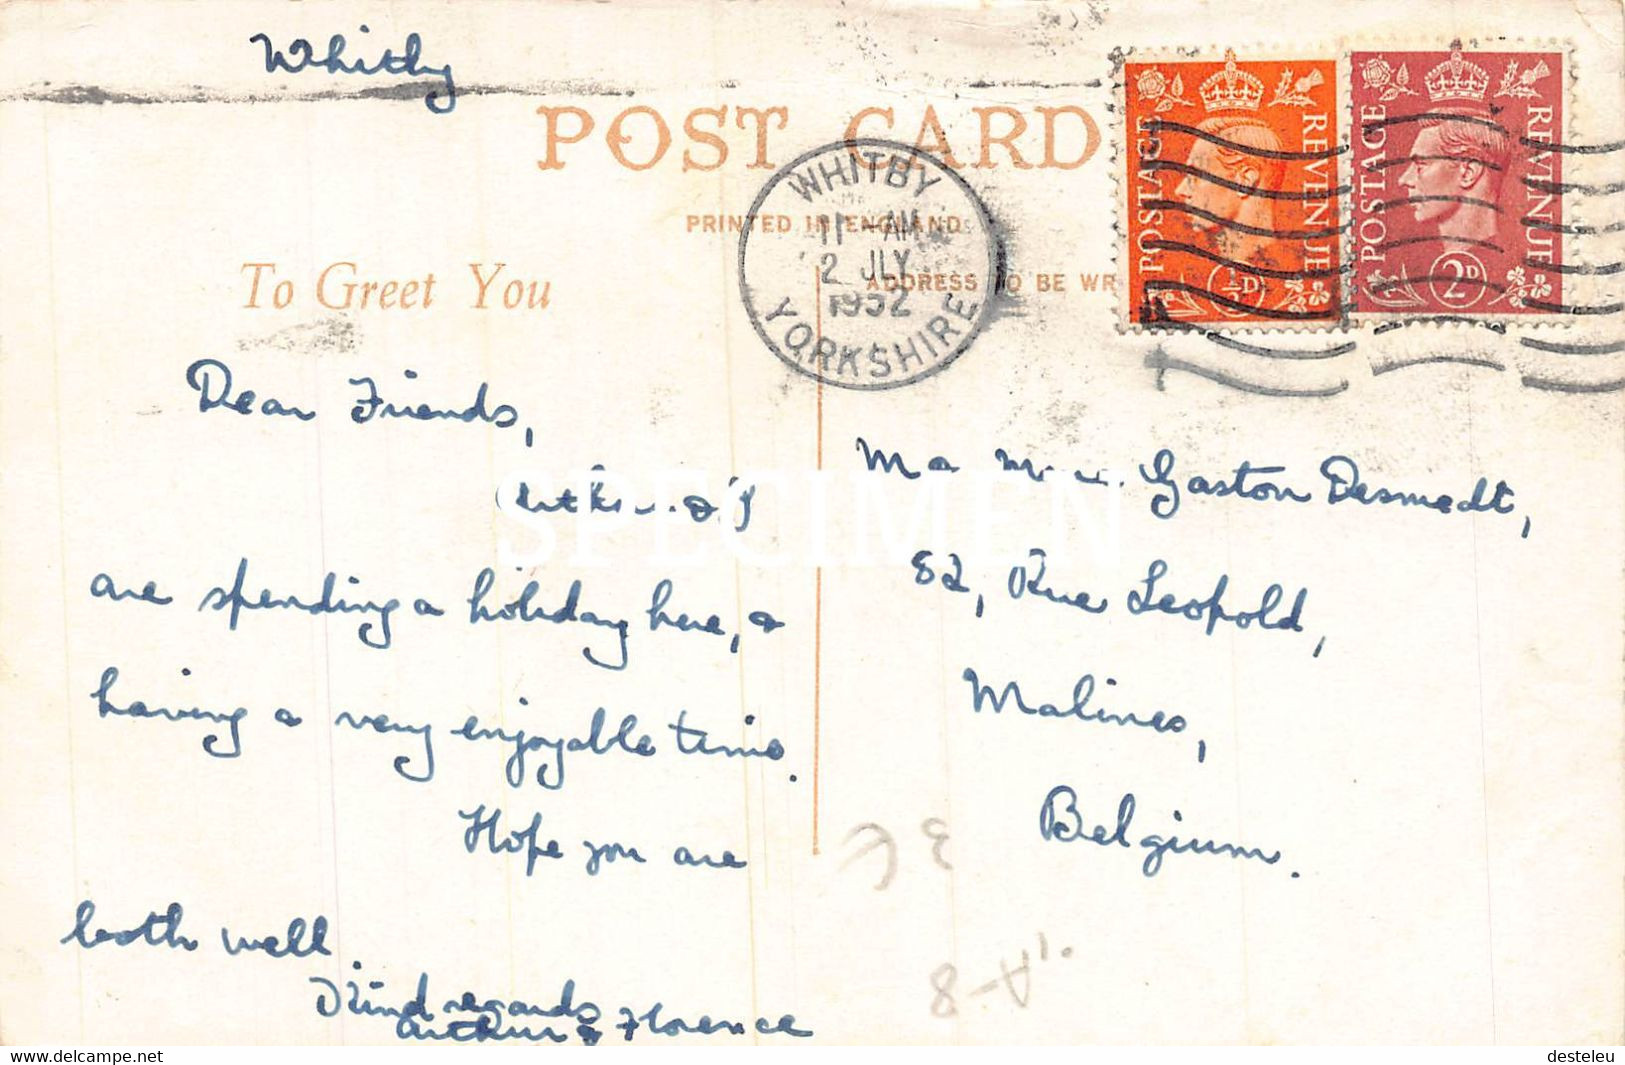 Whitby
POST CARD
PRINTED IN ENGLAND
ADDRESS TO BE WR
WHITBY
11 - AM
2 JLY
1952
YORKSHIRE
POSTAGE REVENUE
½D
POSTAGE REVENUE
2D
To Greet You
Dear Friends,
Arthur & I
are spending a holiday here, &
having a very enjoyable time.
Hope you are
both well.
Kind regards
Arthur & Florence
Gaston Desmedt,
82, Rue Leopold,
Malines,
Belgium.
SPECIMEN
3€
8-A
www.delcampe.net
desteleu